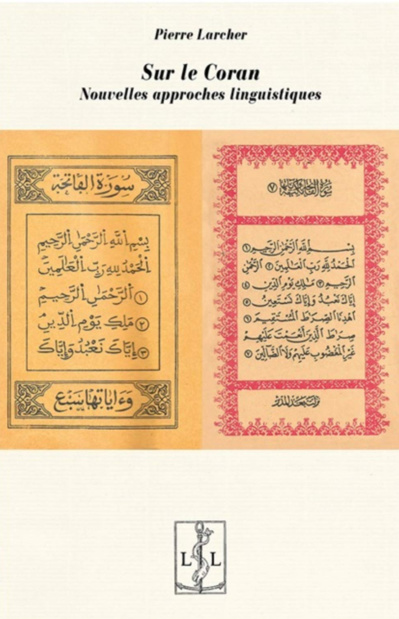 Pierre Larcher
Sur le Coran
Nouvelles approches linguistiques
سُورَة الفَاتِحَة
بِسْمِ اللَّهِ الرَّحْمَٰنِ الرَّحِيمِ
الْحَمْدُ لِلَّهِ رَبِّ الْعَالَمِينَ
الرَّحْمَٰنِ الرَّحِيمِ ١
مَلِكِ يَوْمِ الدِّينِ ٢
إِيَّاكَ نَعْبُدُ وَإِيَّاكَ ٣
وَءَايَاتُهَا سَبْع
بِسْمِ اللَّهِ الرَّحْمَٰنِ الرَّحِيمِ ١
الْحَمْدُ لِلَّهِ رَبِّ الْعَٰلَمِينَ ٢ الرَّحْمَٰنِ
الرَّحِيمِ ٣ مَٰلِكِ يَوْمِ الدِّينِ ٤
إِيَّاكَ نَعْبُدُ وَإِيَّاكَ نَسْتَعِينُ ٥
اهْدِنَا الصِّرَٰطَ الْمُسْتَقِيمَ ٦
صِرَٰطَ الَّذِينَ أَنْعَمْتَ عَلَيْهِمْ
غَيْرِ الْمَغْضُوبِ عَلَيْهِمْ وَلَا الضَّالِّينَ ٧
L L